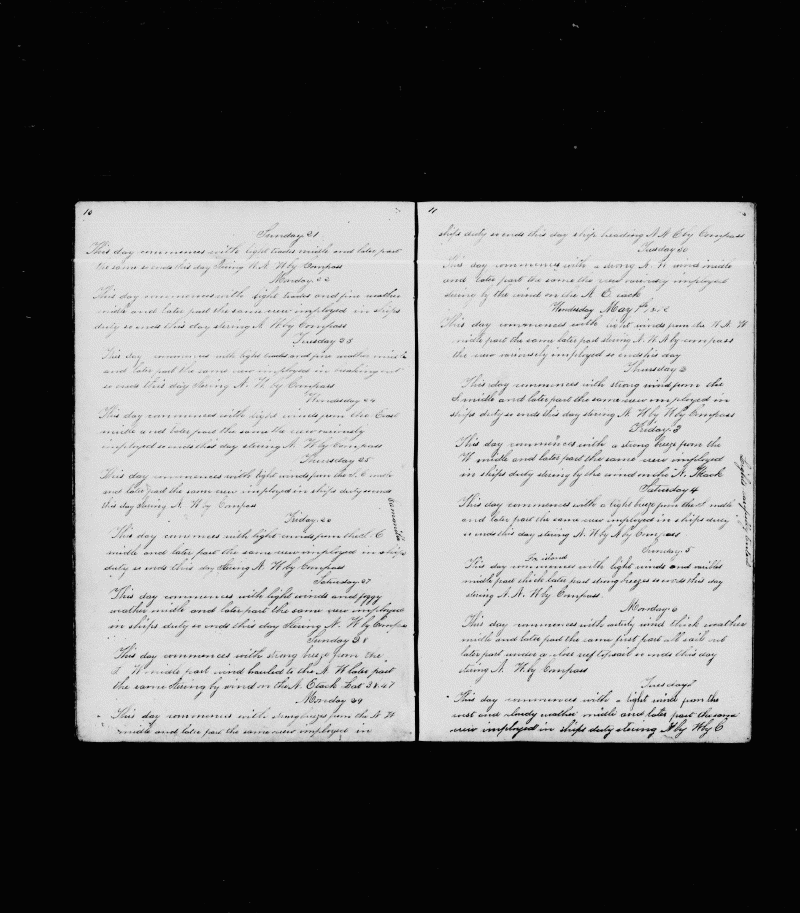 10
Sunday 21
This day commences with light trades midle and later part
the same so ends this day stering N. N. W by Compass
Monday 22
This day commences with light trades and fine weather
midle and later part the same crew imployed in ships
duty so ends this day stering N. W by Compass
Tuesday 23
This day commences with light trades and fine weather midle
and later part the same crew imployed in
so ends this day stering N. W by Compass
Wendesday 24
This day commences with light winds from the East
midle and later part the same the crew variously
imployed so ends this day stering N. W by Compass
Thursday 25
This day commences with light winds from the S. E midle
and later part the same crew imployed in ships duty so ends
this day stering N. W by Compass
Friday 26
This day commences with light winds from the S. E
midle and later part the same crew imployed in ships
duty so ends this day stering N. W by Compass
Saturday 27
This day commences with light winds and foggy
weather midle and later part the same crew imployed
in ships duty so ends this day stering N. W by Compass
Sunday 28
This day commences with strong breeze from the
S W midle part wind hauled to the N. W later part
the same stering by wind on the N. E tack Lat 38.47
Monday 29
This day commences with strong breezes from the N. W
midle and later part the same crew imployed in
11
ships duty so ends this day ship heading N. N. E by Compass
Tuesday 30
This day commences with a strong N. W wind midle
and later part the same the crew variously imployed
stering by the wind on the N. E tack
Wendesday May 1st
This day commences with light winds from the N. N. W
midle part the same later part stering N. W by compass
the crew variously imployed so ends this day
Thursday 2
This day commences with strong wind from the
S. midle and later part the same crew imployed in
ships duty so ends this day stering N. W by W by Compass
Friday 3
This day commences with a strong breeze from the
W midle and later part the same crew imployed
in ships duty stering by the wind on the N. tack
Saturday 4
This day commences with a light breeze from the S midle
and later part the same crew imployed in ships duty
so ends this day stering N. W by N by Compass
Sunday 5
Fox island
This day commences with light winds and varibles
midle part thick later part strong breezes so ends this day
stering N. N. W by Compass
Monday 6
This day commences with wind thick weather
midle and later part the same first part all sail set
later part under a close reef topsail so ends this day
stering N. W by Compass
Tuesday
This day commences with a light wind from the
west and cloudy weather midle and later part the same
crew imployed in ships duty stering N by W by C